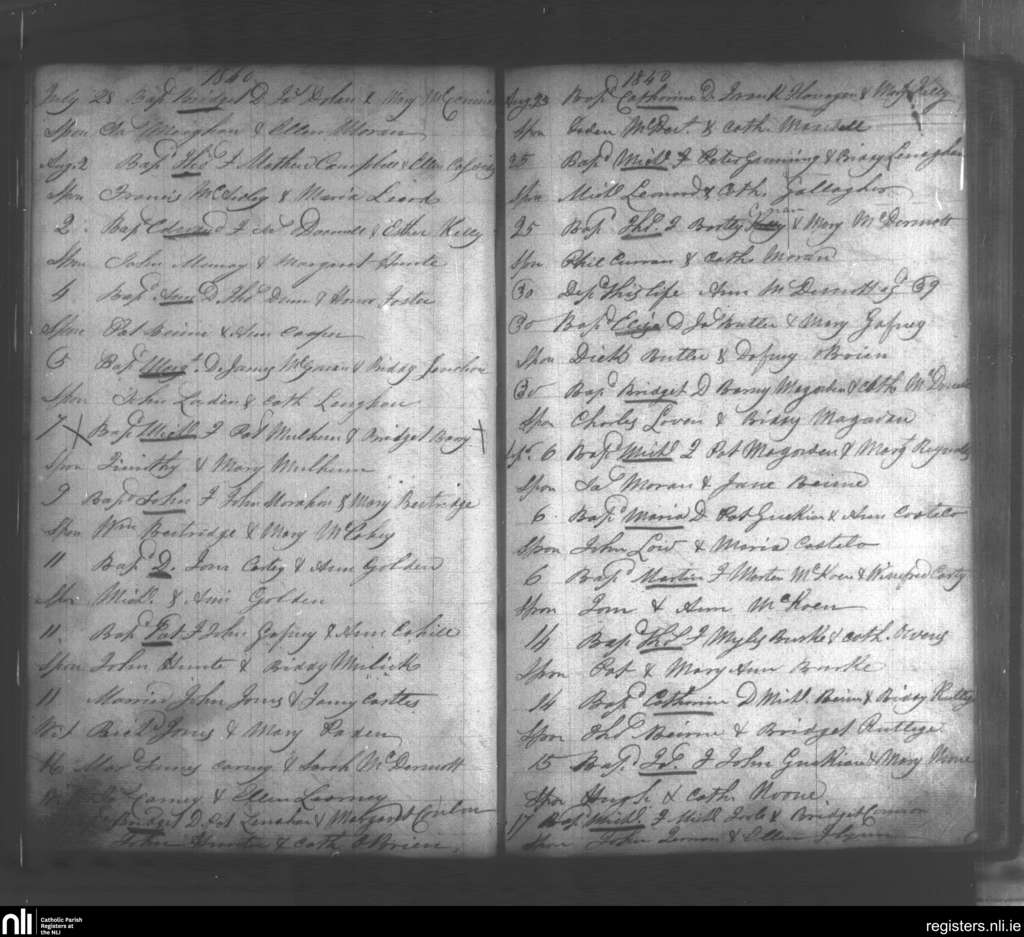 1840
July 28 Bapd Bridget D Jas Dolan & Mary
Spon Jas Monaghan & Ellen Moran
Aug. 2 Bapd Thos F Mathew Campbell & Ellen
Spon Francis & Maria
2 Bapd Edward F Jas & Esther Kelly
Spon John Murray & Margaret Hunte
4 Bapd Ann D Thos Dunn & Honor Foster
Spon Pat Beirne & Ann Cooper
5 Bapd Margt D James McGarran & Biddy
Spon John & Cath Lenghan
7 Bapd Michl F Pat Mulhern & Bridget Barry
Spon Timothy & Mary Mulhern
9 Bapd John F John Morahan & Mary Beitridge
Spon Wm Beitridge & Mary McCabey
11 Bapd D. Tom & Ann Golden
Spon Michl & Ann Golden
11. Bapd Pat F John Gafney & Ann Cahill
Spon John Hunte & Biddy Mulick
11 Married John Jones & Jamy
Wit Richd Jones & Mary Paden
16 Mar James Carney & Sarah McDermott
Carney & Ellen
Bridget D. Pat Lenahan & Margaret Conlon
John Hunte & Cath OBrien
1840
Aug. 23 Bapd Catherine D Frank Flanagan & Mary Kelly
Spon & Cath.
25 Bapd Michl F Peter Gunning & Biddy Lenaghan
Spon Michl Lennord & Cath. Gallagher
25 Bapd Thos F Bartly & Mary McDermott
Spon Phil Curran & Cath Moran
30 Depd this life Ann McDermott 39
30 Bapd Eliza D Jas Butler & Mary Gafney
Spon Dick Butler & Dafney OBrien
30 Bapd Bridget D Barny Magarden & Cath McDermott
Spon Charles & Biddy Magadan
6 Bapd Michl F Pat Magarden & Mary Reynolds
Spon Jas Moran & Jane Beirne
6. Bapd Maria D Pat Guckian & Ann Costelo
Spon John & Maria Costelo
6 Bapd Martin F Marten McKoen & Winefred Carty
Spon Tom & Ann McKoen
14 Bapd Thos F Myles Burke & Cath. Owens
Spon Pat & Mary Ann Bourke
14 Bapd Catherine D Michl Beirn & Biddy Rutlege
Spon Thos Beirne & Bridget Rutlege
15 Bapd Jas F John Guckian & Mary Noone
Spon Hugh & Cath. Noone.
17 Bapd Michl F Michl Foote & Bridget Connor
Spon John & Ellen Flynn
nli Catholic Parish
Registers at
the NLI
registers.nli.ie